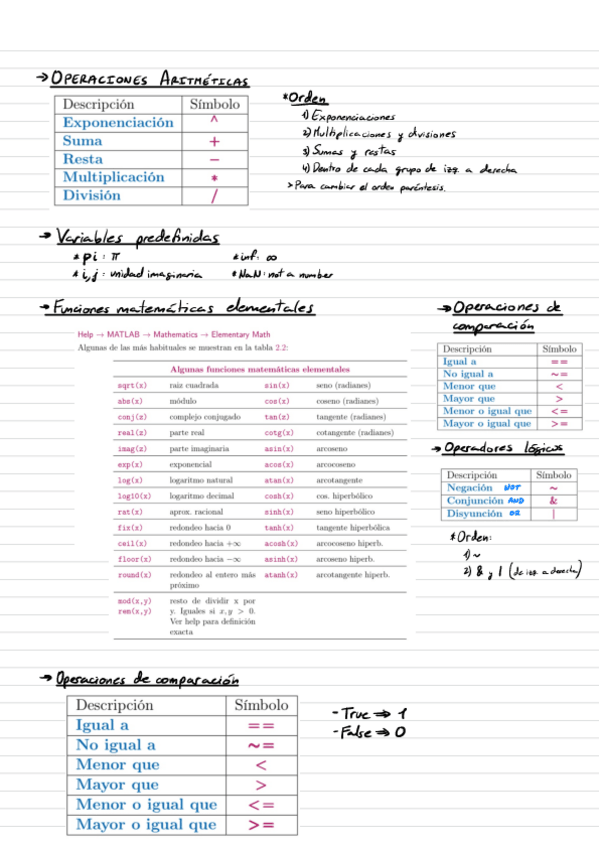 → OPERACIONES ARITMÉTICAS
Descripción Símbolo
Exponenciación ^
Suma +
Resta −
Multiplicación *
División /
*Orden
1) Exponenciaciones
2) Multiplicaciones y divisiones
3) Sumas y restas
4) Dentro de cada grupo de izq. a derecha
> Para cambiar el orden paréntesis.
→ Variables predefinidas
* pi : π * inf: ∞
* i, j : unidad imaginaria * NaN: not a number
→ Funciones matemáticas elementales
Help → MATLAB → Mathematics → Elementary Math
Algunas de las más habituales se muestran en la tabla 2.2:
Algunas funciones matemáticas elementales
sqrt(x) raiz cuadrada sin(x) seno (radianes)
abs(x) módulo cos(x) coseno (radianes)
conj(z) complejo conjugado tan(z) tangente (radianes)
real(z) parte real cotg(x) cotangente (radianes)
imag(z) parte imaginaria asin(x) arcoseno
exp(x) exponencial acos(x) arcocoseno
log(x) logaritmo natural atan(x) arcotangente
log10(x) logaritmo decimal cosh(x) cos. hiperbólico
rat(x) aprox. racional sinh(x) seno hiperbólico
fix(x) redondeo hacia 0 tanh(x) tangente hiperbólica
ceil(x) redondeo hacia +∞ acosh(x) arcocoseno hiperb.
floor(x) redondeo hacia −∞ asinh(x) arcoseno hiperb.
round(x) redondeo al entero más próximo atanh(x) arcotangente hiperb.
mod(x,y) resto de dividir x por
rem(x,y) y. Iguales si x, y > 0.
Ver help para definición
exacta
→ Operaciones de
comparación
Descripción Símbolo
Igual a ==
No igual a ~=
Menor que <
Mayor que >
Menor o igual que <=
Mayor o igual que >=
→ Operadores lógicos
Descripción Símbolo
Negación NOT ~
Conjunción AND &
Disyunción OR |
*Orden:
1) ~
2) & y | (de izq. a derecha)
→ Operaciones de comparación
Descripción Símbolo
Igual a ==
No igual a ~=
Menor que <
Mayor que >
Menor o igual que <=
Mayor o igual que >=
- True ⇒ 1
- False ⇒ 0